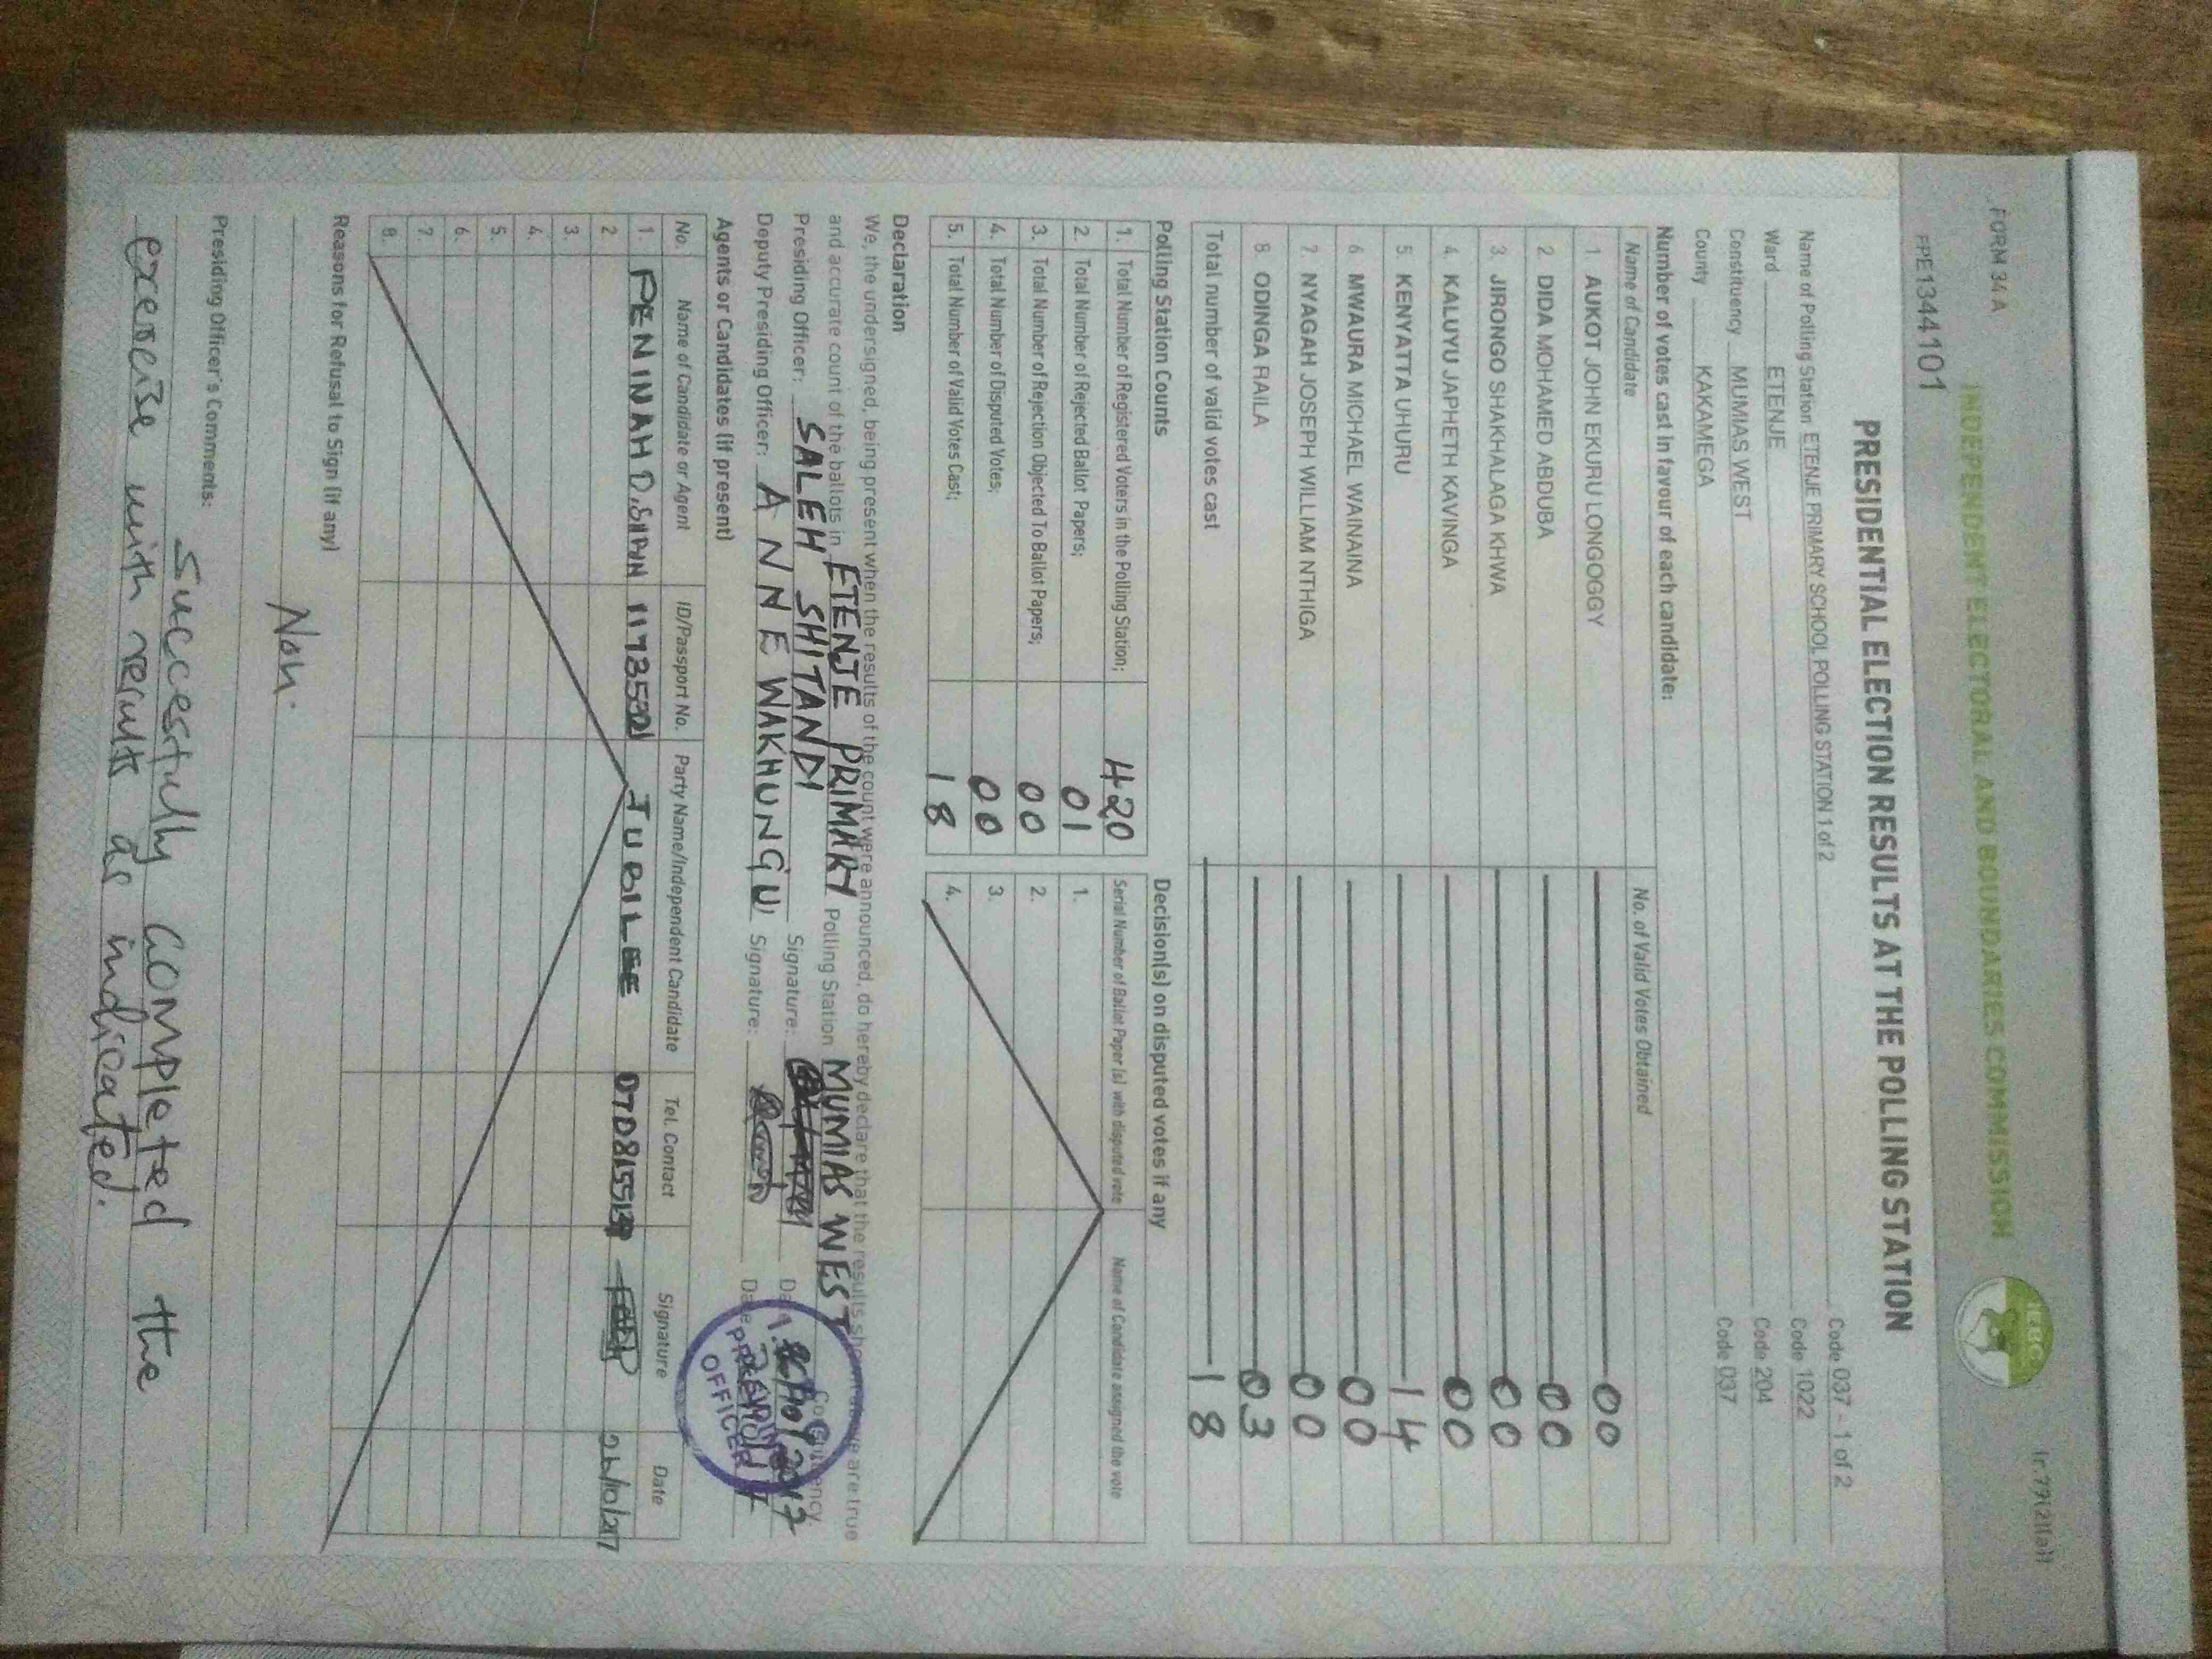 FORM 34 A
(r.79(2)(a))
INDEPENDENT ELECTORAL AND BOUNDARIES COMMISSION
IEBC
PPE1344101
PRESIDENTIAL ELECTION RESULTS AT THE POLLING STATION
Name of Polling Station ETENJE PRIMARY SCHOOL POLLING STATION 1 of 2 Code 037 - 1 of 2
Ward ETENJE Code 1022
Constituency MUMIAS WEST Code 204
County KAKAMEGA Code 037
Number of votes cast in favour of each candidate:
Name of Candidate No. of Valid Votes Obtained
1. AUKOT JOHN EKURU LONGOGGY 00
2 DIDA MOHAMED ABDUBA 00
3. JIRONGO SHAKHALAGA KHWA 00
4. KALUYU JAPHETH KAVINGA 00
5 KENYATTA UHURU 14
6 MWAURA MICHAEL WAINAINA 00
7. NYAGAH JOSEPH WILLIAM NTHIGA 00
8 ODINGA RAILA 03
Total number of valid votes cast 18
Polling Station Counts
1. Total Number of Registered Voters in the Polling Station; 420
2. Total Number of Rejected Ballot Papers; 01
3. Total Number of Rejection Objected To Ballot Papers; 00
4. Total Number of Disputed Votes; 00
5. Total Number of Valid Votes Cast; 18
Decision(s) on disputed votes if any
Serial Number of Ballot Paper (s) with disputed vote Name of Candidate assigned the vote
1.
2.
3.
4.
Declaration
We, the undersigned, being present when the results of the count were announced, do hereby declare that the results shown above are true
and accurate count of the ballots in ETENJE PRIMARY Polling Station MUMIAS WEST Constituency.
Presiding Officer: SALEH SHITANDI Signature: Date
Deputy Presiding Officer: ANNE WAKHUNGU Signature: Date
PRESIDING
OFFICER
Agents or Candidates (if present)
No. Name of Candidate or Agent ID/Passport No. Party Name/Independent Candidate Tel. Contact Signature Date
1. PENINAH D. JUBILEE
2
3.
4.
5.
6.
7.
8.
Reasons for Refusal to Sign (if any)
Non.
Presiding Officer's Comments:
Successfully completed the
exercise with results as indicated.